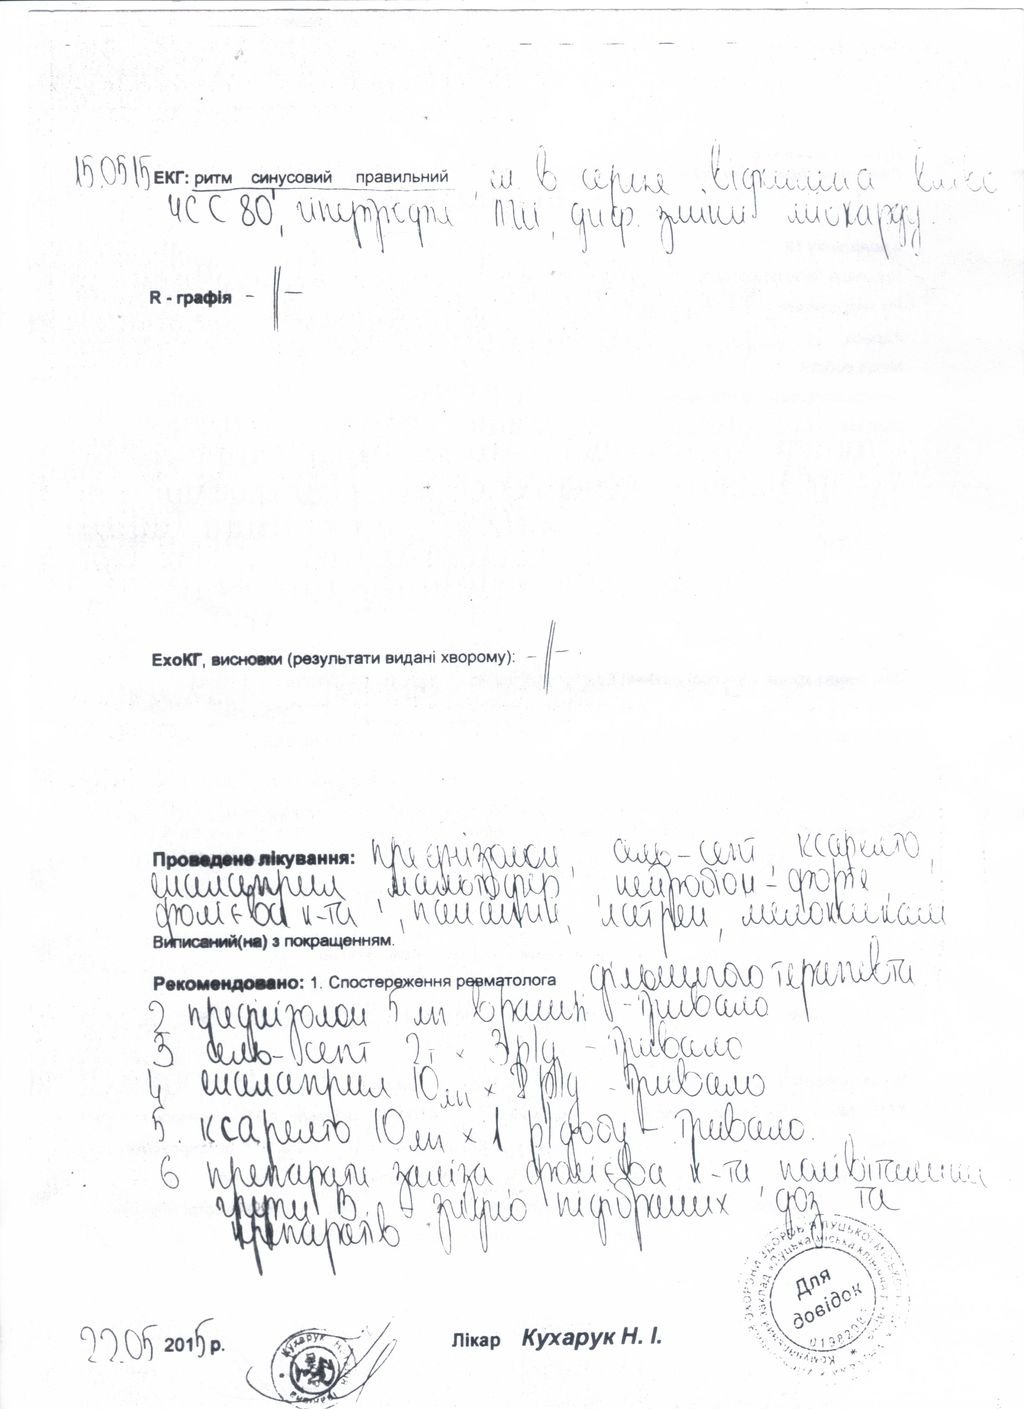 15.05.15 ЕКГ: ритм синусовий правильний, ел. в серця відхилена вліво
ЧСС 80', гіпертрофія ЛШ, диф. зміни міокарду.
R - графія - || -
ЕхоКГ, висновки (результати видані хворому): - || -
Проведене лікування: преднізолон, сель-септ, ксарелто,
еналаприл, мальтофер, нейробіон-форте,
фолієва к-та, мелоксикам
Виписаний(на) з покращенням.
Рекомендовано: 1. Спостереження ревматолога, дільничного терапевта
2 преднізолон 5 мг вранці - тривало
3 сель-септ 2т х 3 р/д - тривало
4 еналаприл 10 мг х р/д - тривало
5. ксарелто 10 мг х 1 р/добу - тривало.
6 препарати заліза, фолієва к-та, полівітаміни
групи В. - згідно підібраних доз та
препаратів
22.05 2015 р.
Лікар Кухарук Н. І.
Кухарук Н.
Для
довідок